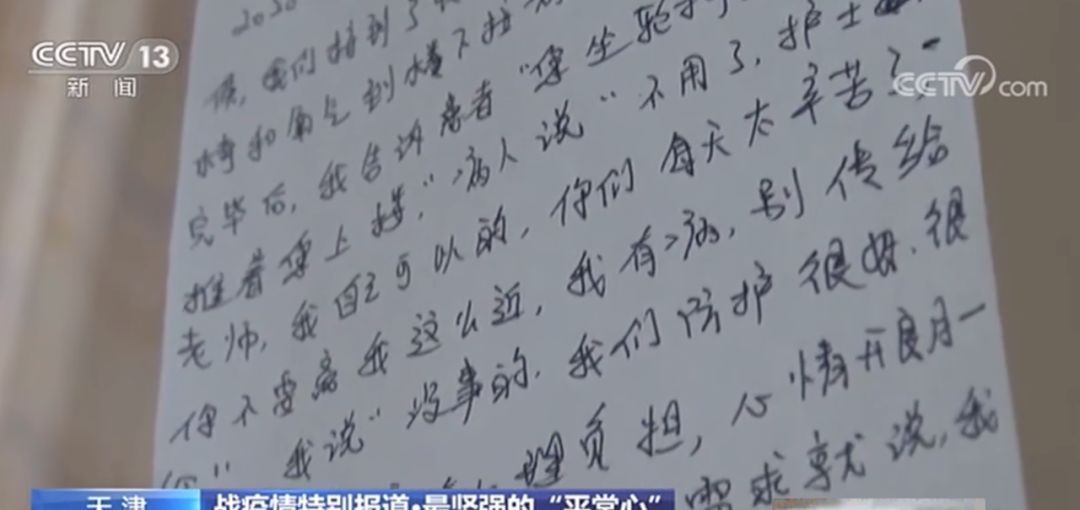 CCTV 13
新闻
CCTV.com
2020
候，我们接到了
完毕后，我告诉患者“您坐轮
推着您上楼，”病人说“不用了，护士
老师，我自己可以的，你们每天太辛苦了
你不要离我这么近，我有病，别传给
你”我说“没事的，我们防护很好，很
理负担，心情开良月一
需求就说，我
天津
战疫情特别报道·最坚强的“平常心”